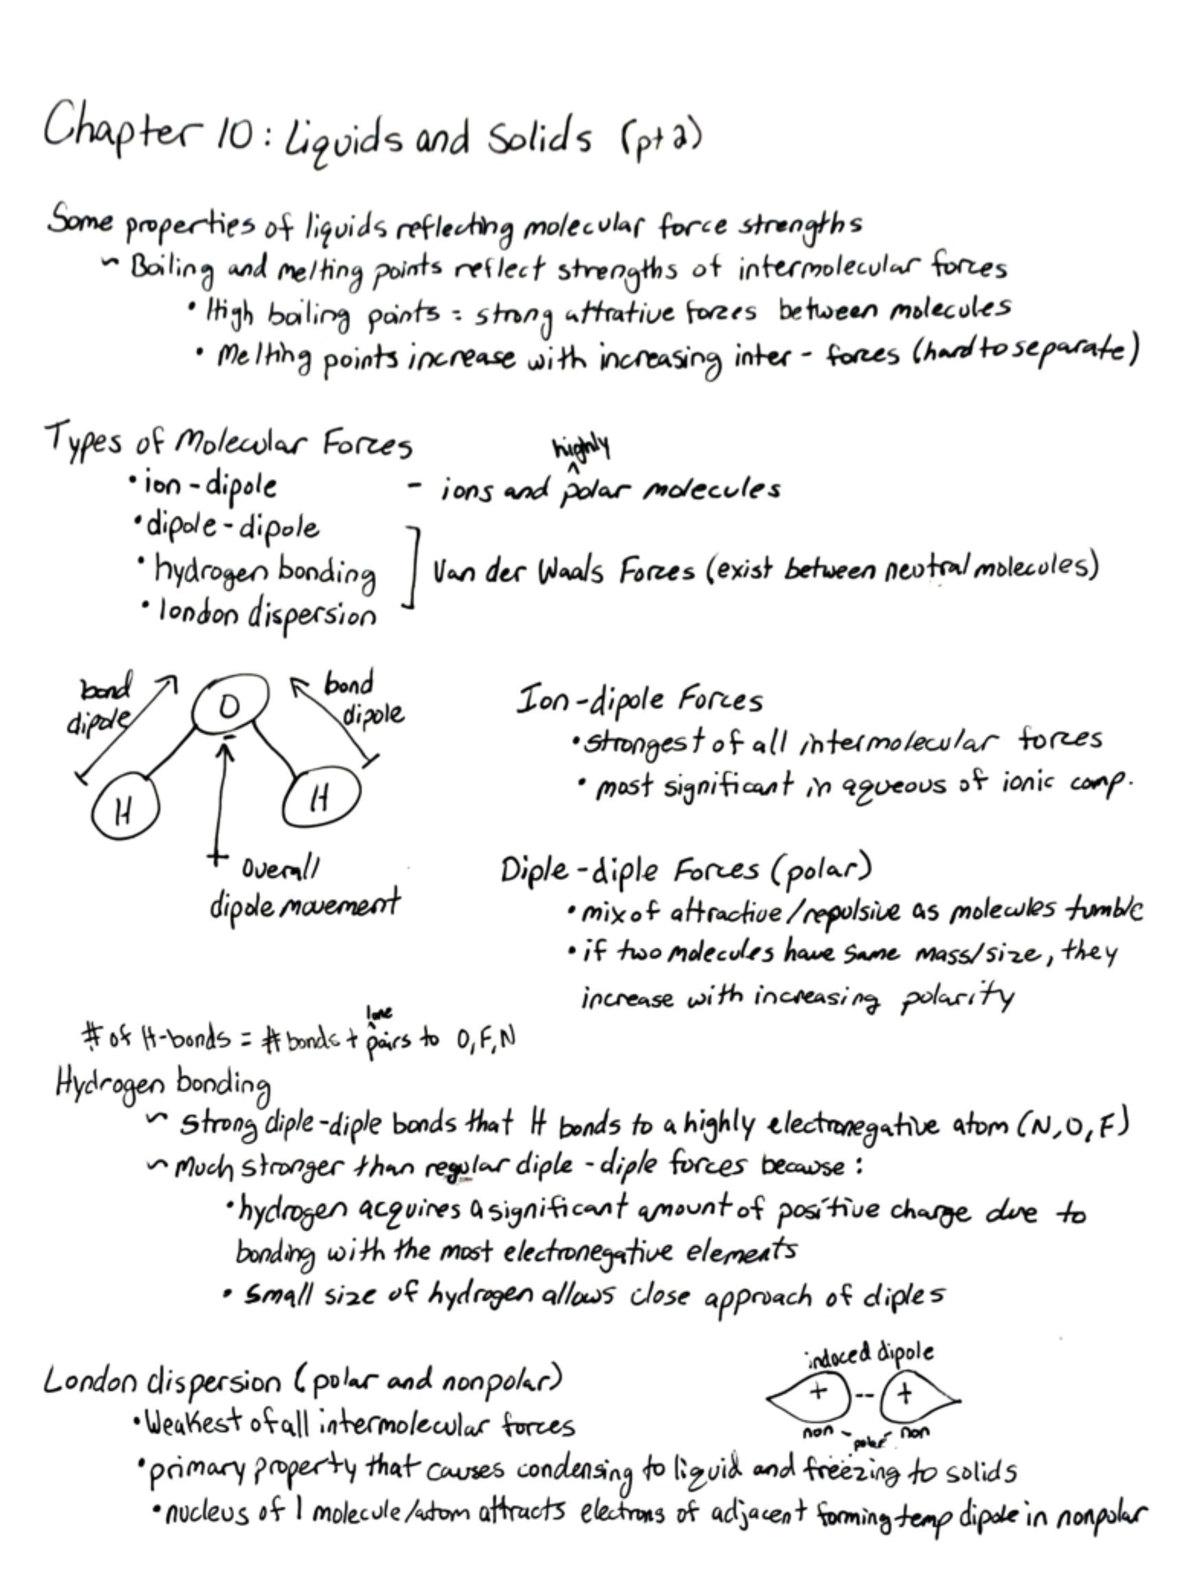 Chapter 10: Liquids and Solids (pt 2)
Some properties of liquids reflecting molecular force strengths
~ Boiling and melting points reflect strengths of intermolecular forces
• High boiling points = strong attrative forces between molecules
• Melting points increase with increasing inter - forces (hard to separate)
Types of Molecular Forces
• ion - dipole - ions and ^highly polar molecules
• dipole - dipole
• hydrogen bonding ] Van der Waals Forces (exist between neutral molecules)
• london dispersion
bond dipole
O
bond dipole
H
H
+ Overall
dipole movement
Ion-dipole Forces
• strongest of all intermolecular forces
• most significant in aqueous of ionic comp.
Diple-diple Forces (polar)
• mix of attractive/repulsive as molecules tumble
• if two molecules have same mass/size, they
increase with increasing polarity
# of H-bonds = # bonds + ^lone pairs to O, F, N
Hydrogen bonding
~ Strong diple-diple bonds that H bonds to a highly electronegative atom (N, O, F)
~ Much stronger than regular diple - diple forces because:
• hydrogen acquires a significant amount of positive charge due to
bonding with the most electronegative elements
• Small size of hydrogen allows close approach of diples
London dispersion (polar and nonpolar)
induced dipole
+ -- +
non - polar - non
• Weakest of all intermolecular forces
• primary property that causes condensing to liquid and freezing to solids
• nucleus of 1 molecule/atom attracts electrons of adjacent forming temp dipole in nonpolar